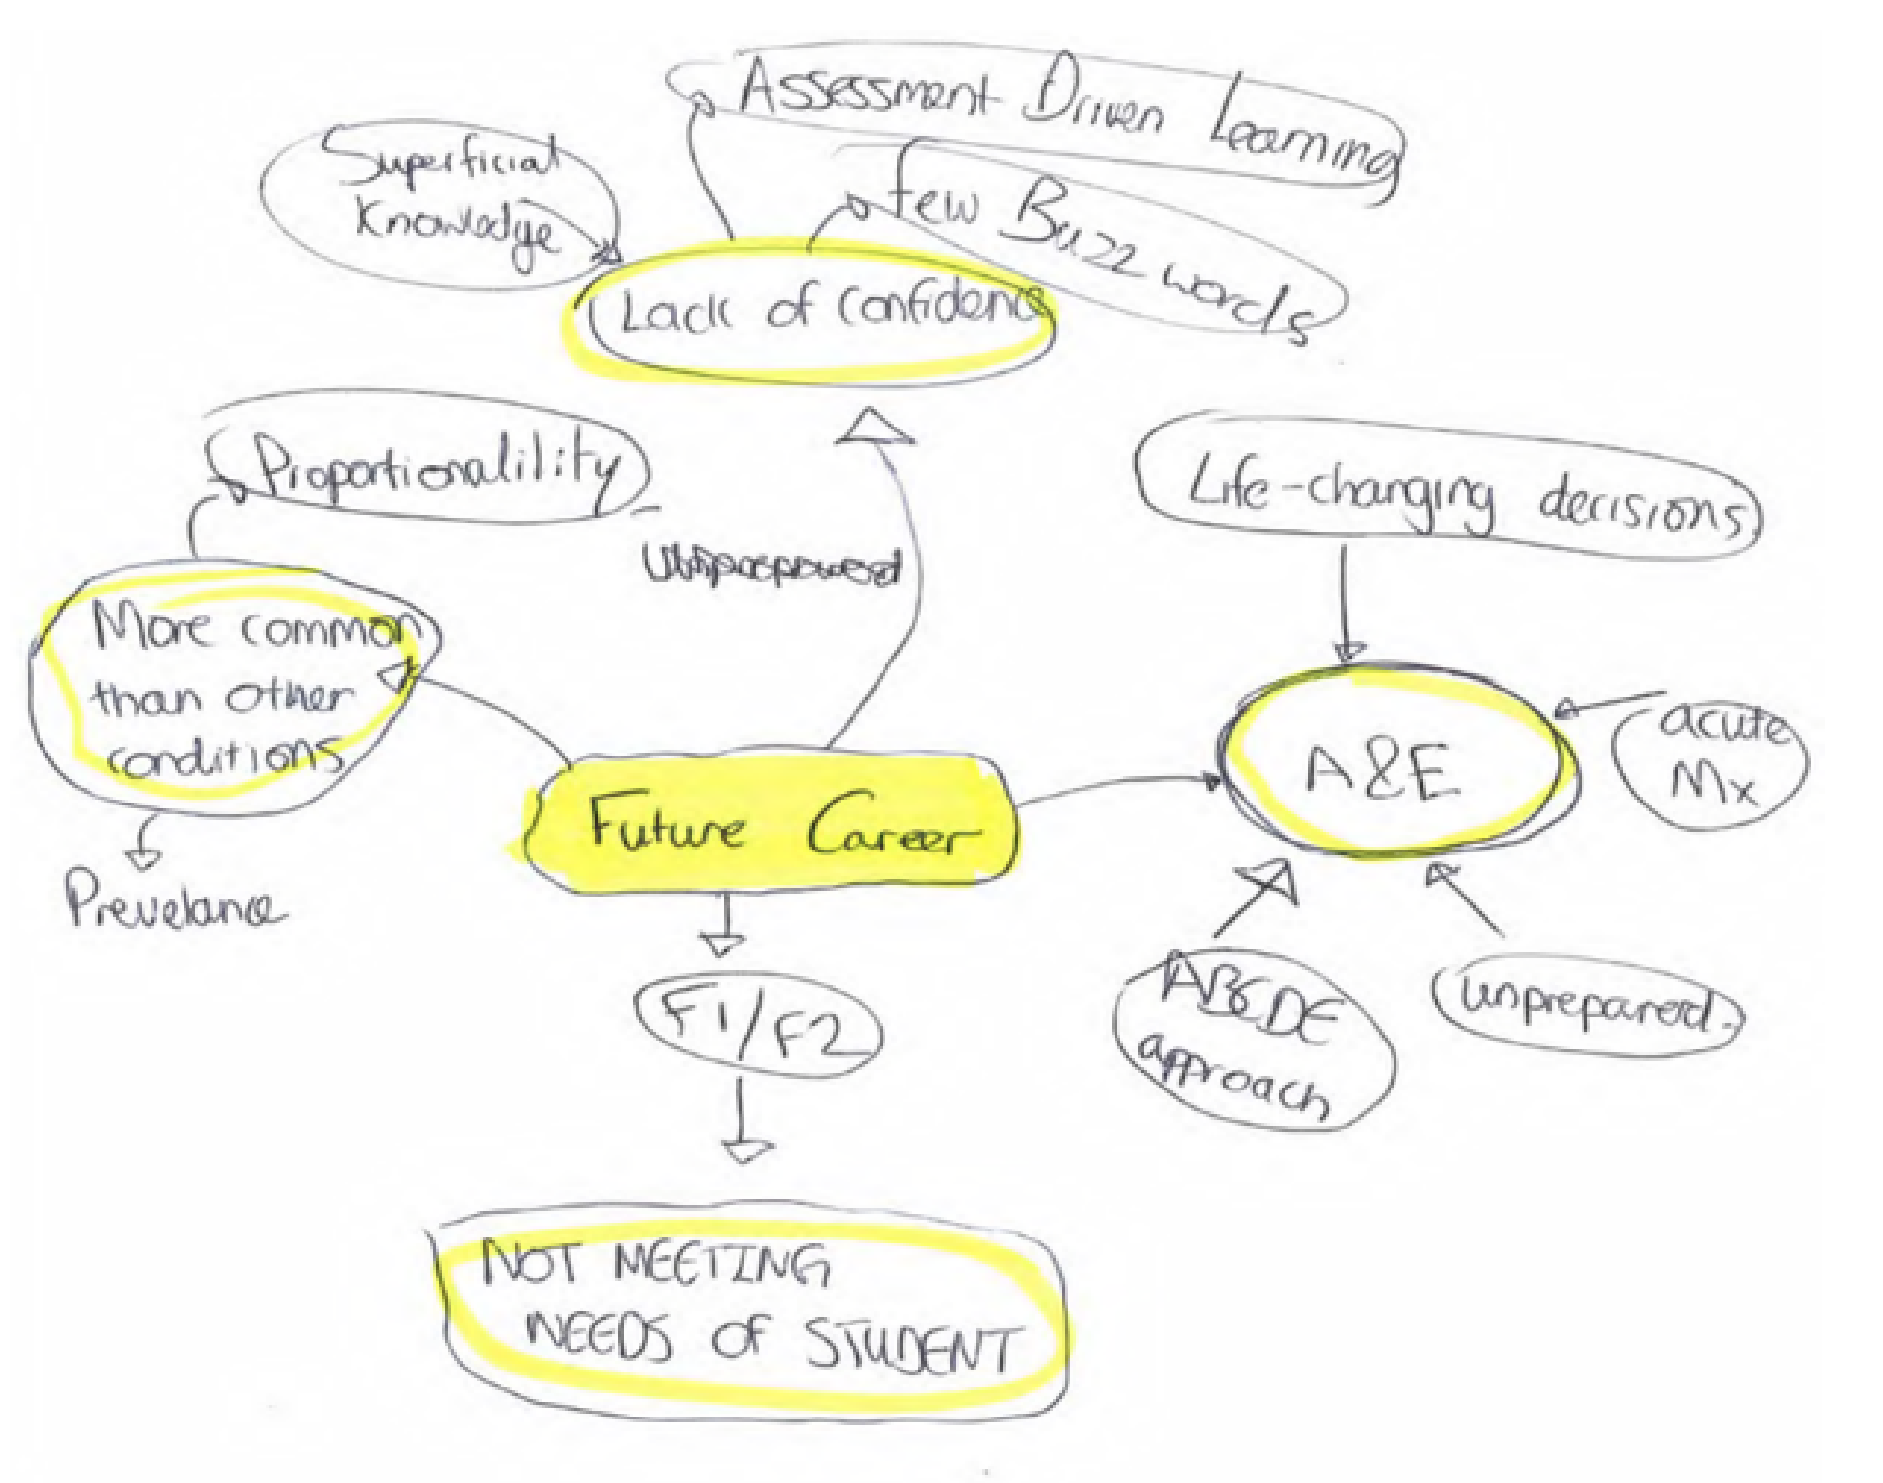 Assessment Driven Learning
Superficial
Knowledge
Few Buzz words
Lack of confidence
Proportionalility
Life-changing decisions
More common
than other
conditions
acute
Mx
A&E
Future Career
Prevelance
ABCDE
approach
unprepared.
F1/F2
NOT MEETING
NEEDS OF STUDENT